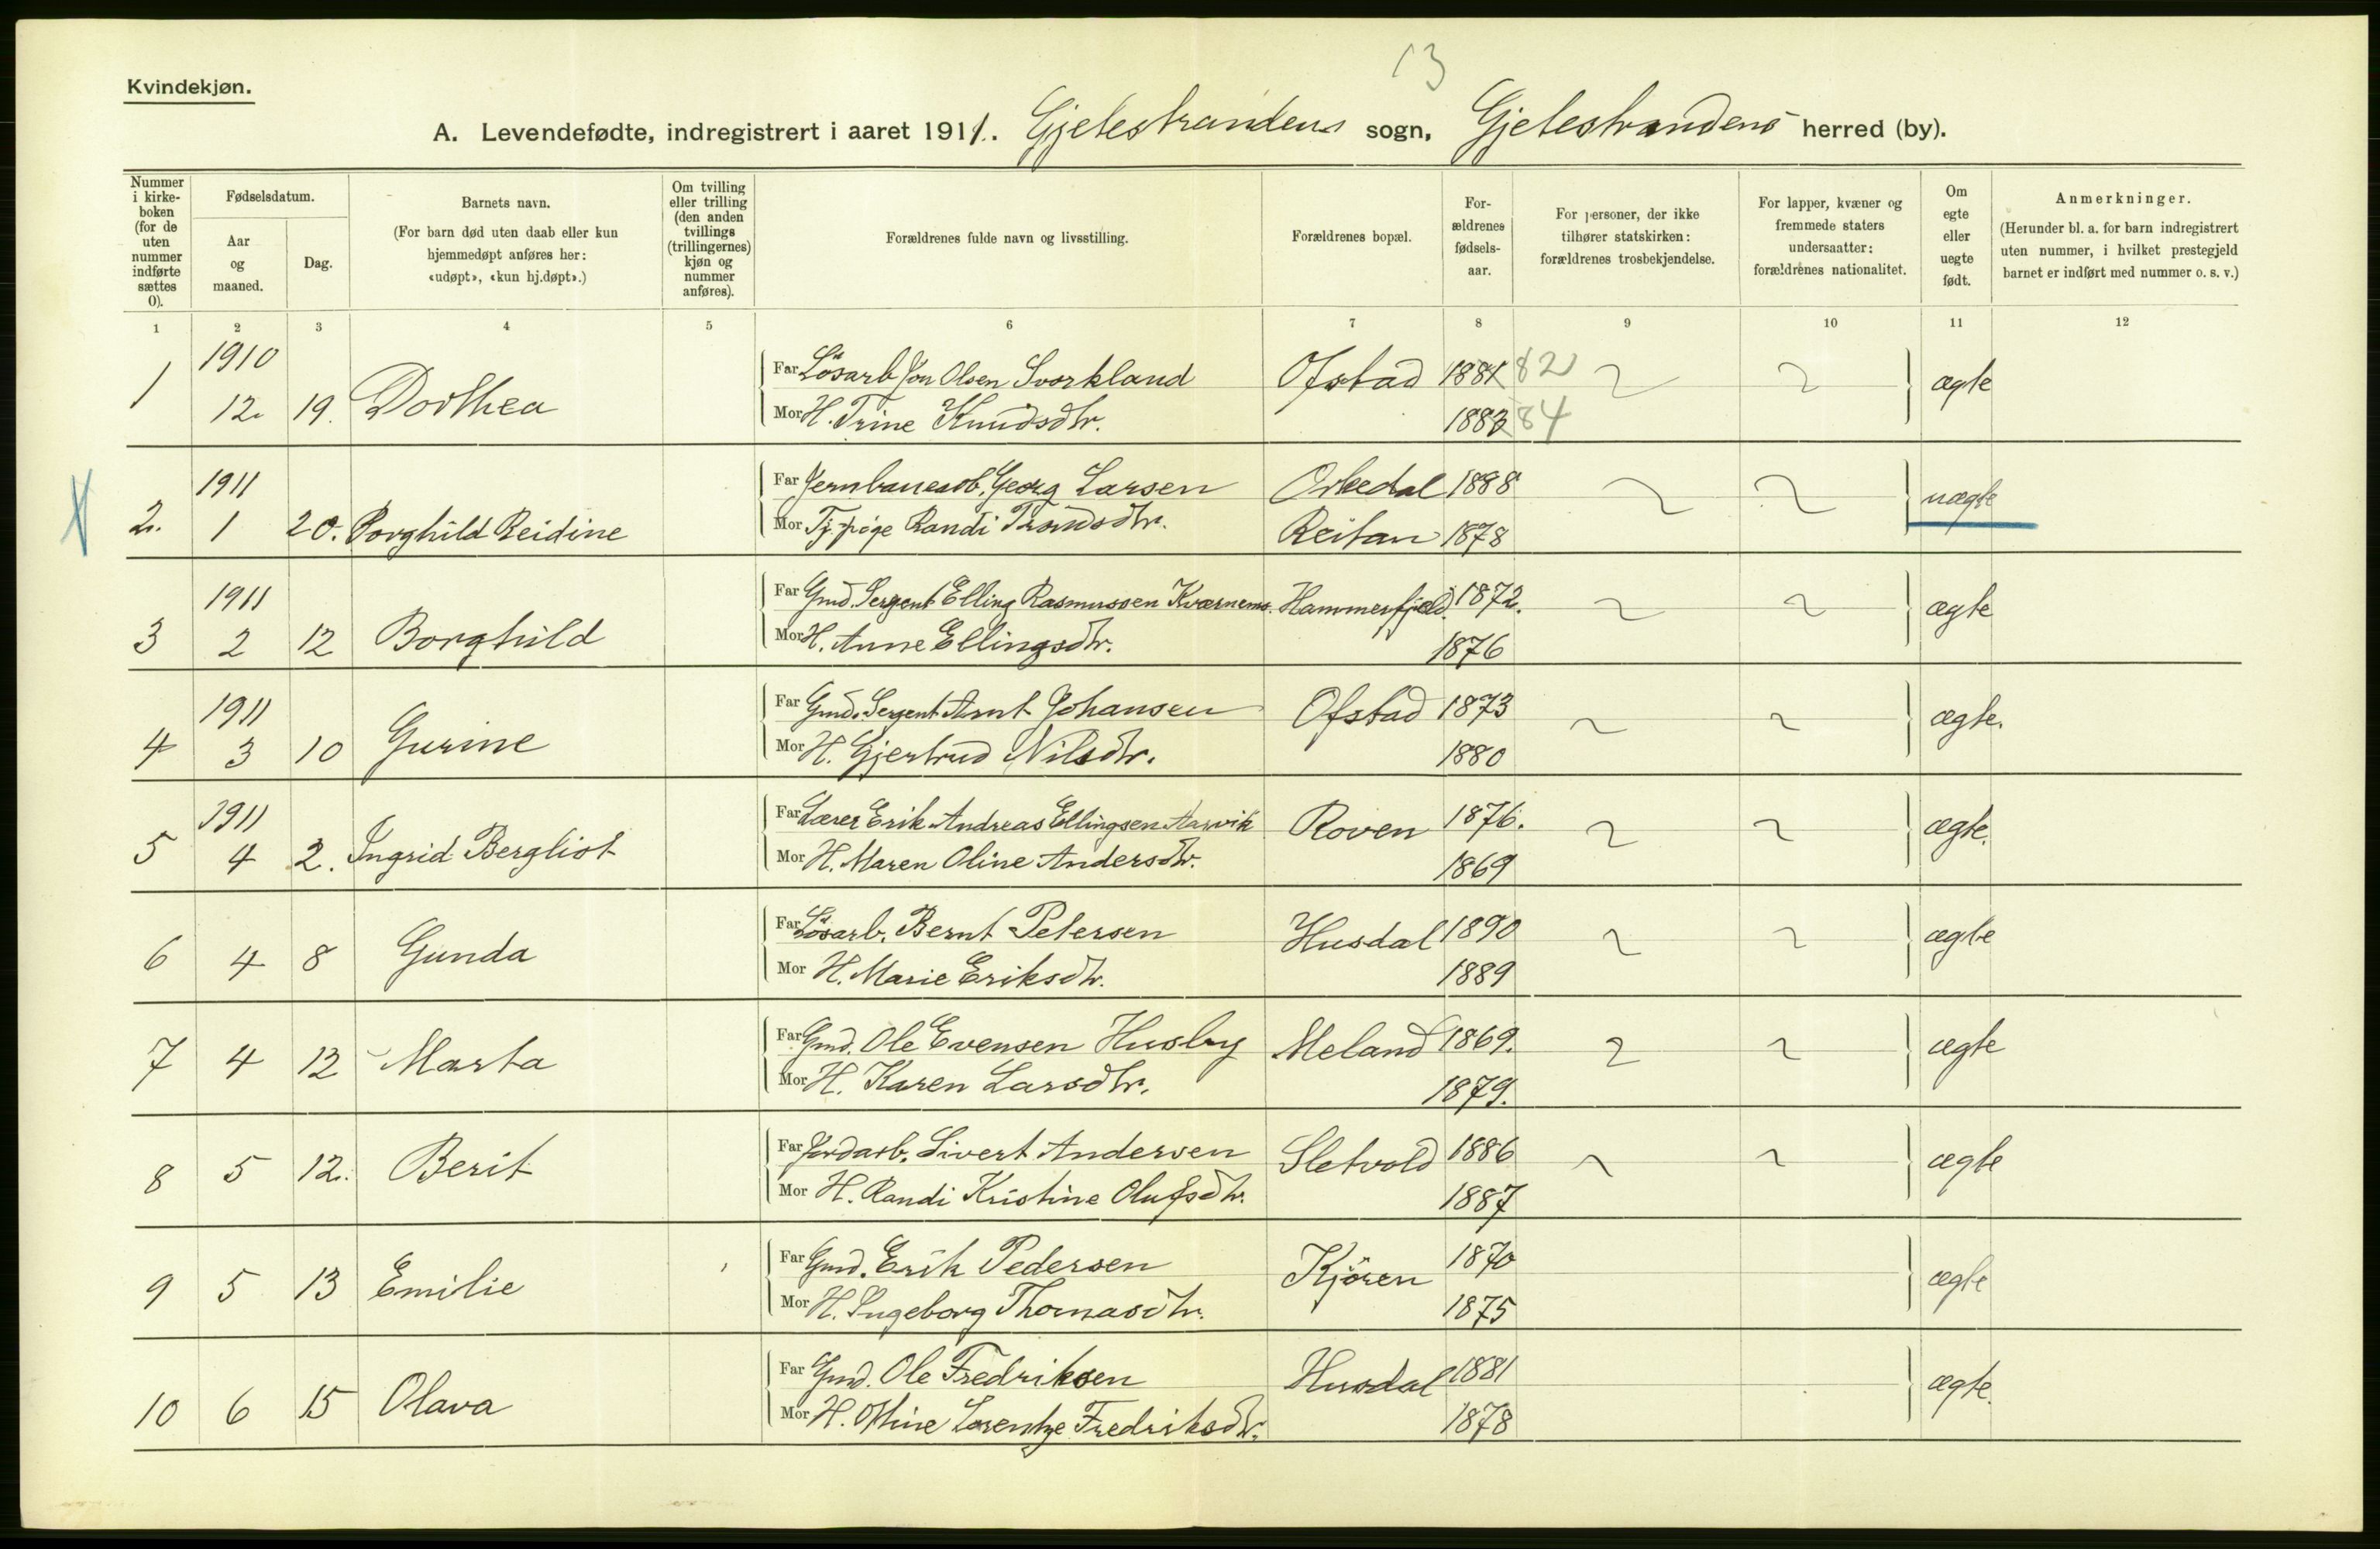 13
Kvindekjøn.
A. Levendefødte, indregistrert i aaret 1911. Gjetestrandens sogn, Gjetestrandens herred (by).
Nummer i kirke-boken (for de uten nummer indførte sættes 0).
Fødselsdatum.
Aar og maaned.
Dag.
Barnets navn.
(For barn død uten daab eller kun hjemmedøpt anføres her: «udøpt», «kun hj.døpt».)
Om tvilling eller trilling (den anden tvillings (trillingernes) kjøn og nummer anføres).
Forældrenes fulde navn og livsstilling.
Forældrenes bopæl.
For-ældrenes fødsels-aar.
For personer, der ikke tilhører statskirken: forældrenes trosbekjendelse.
For lapper, kvæner og fremmede staters undersaatter: forældrenes nationalitet.
Om egte eller uegte født.
Anmerkninger.
(Herunder bl. a. for barn indregistrert uten nummer, i hvilket prestegjeld barnet er indført med nummer o. s. v.)
1 2 3 4 5 6 7 8 9 10 11 12
1 1910 12. 19. Dorthea Far Løsarb. Jon Olsen Svorkland Ofstad 1881 82 ægte
Mor H. Trine Knudsdtr. 1883 84
2. 1911 1 20. Borghild Reidine Far Jernbanearb. Georg Larsen Orkedal 1888 uægte
Mor Tj. pige Randi Trondsdtr. Reitan 1878
3 1911 2 12 Borghild Far Gmd. Sergent Elling Rasmussen Kværnemo. Hammersfjeld. 1872.
ægte
Mor H. Anne Ellingsdtr. 1876
4 1911 3 10 Gurine Far Gmd. Sergent Arnt Johansen Ofstad 1873 ægte.
Mor H. Gjertrud Nilsdtr. 1880
5 1911 4 2. Ingrid Bergliot Far Lærer Erik Andreas Ellingsen Aasvik Roven 1876. ægte.
Mor H. Maren Oline Andersdtr. 1869
6 4 8 Gunda Far Løsarb. Bernt Petersen Husdal 1890 ægte
Mor H. Marie Eriksdtr. 1889
7 4 12 Marta Far Gmd. Ole Evensen Husby Meland 1869. ægte
Mor H. Karen Larsdtr. 1879.
8 5 12. Berit Far Jordarb. Sivert Andersen Sletvold 1886 ægte
Mor H. Randi Kristine Olufsdtr. 1887
9 5 13 Emilie Far Gmd. Erik Pedersen Kjøren 1870 ægte
Mor H. Ingeborg Thomasdtr. 1875
10 6 15 Olava Far Gmd. Ole Fredriksen Husdal 1881 ægte.
Mor H. Othine Lorentze Fredriksdtr. 1878